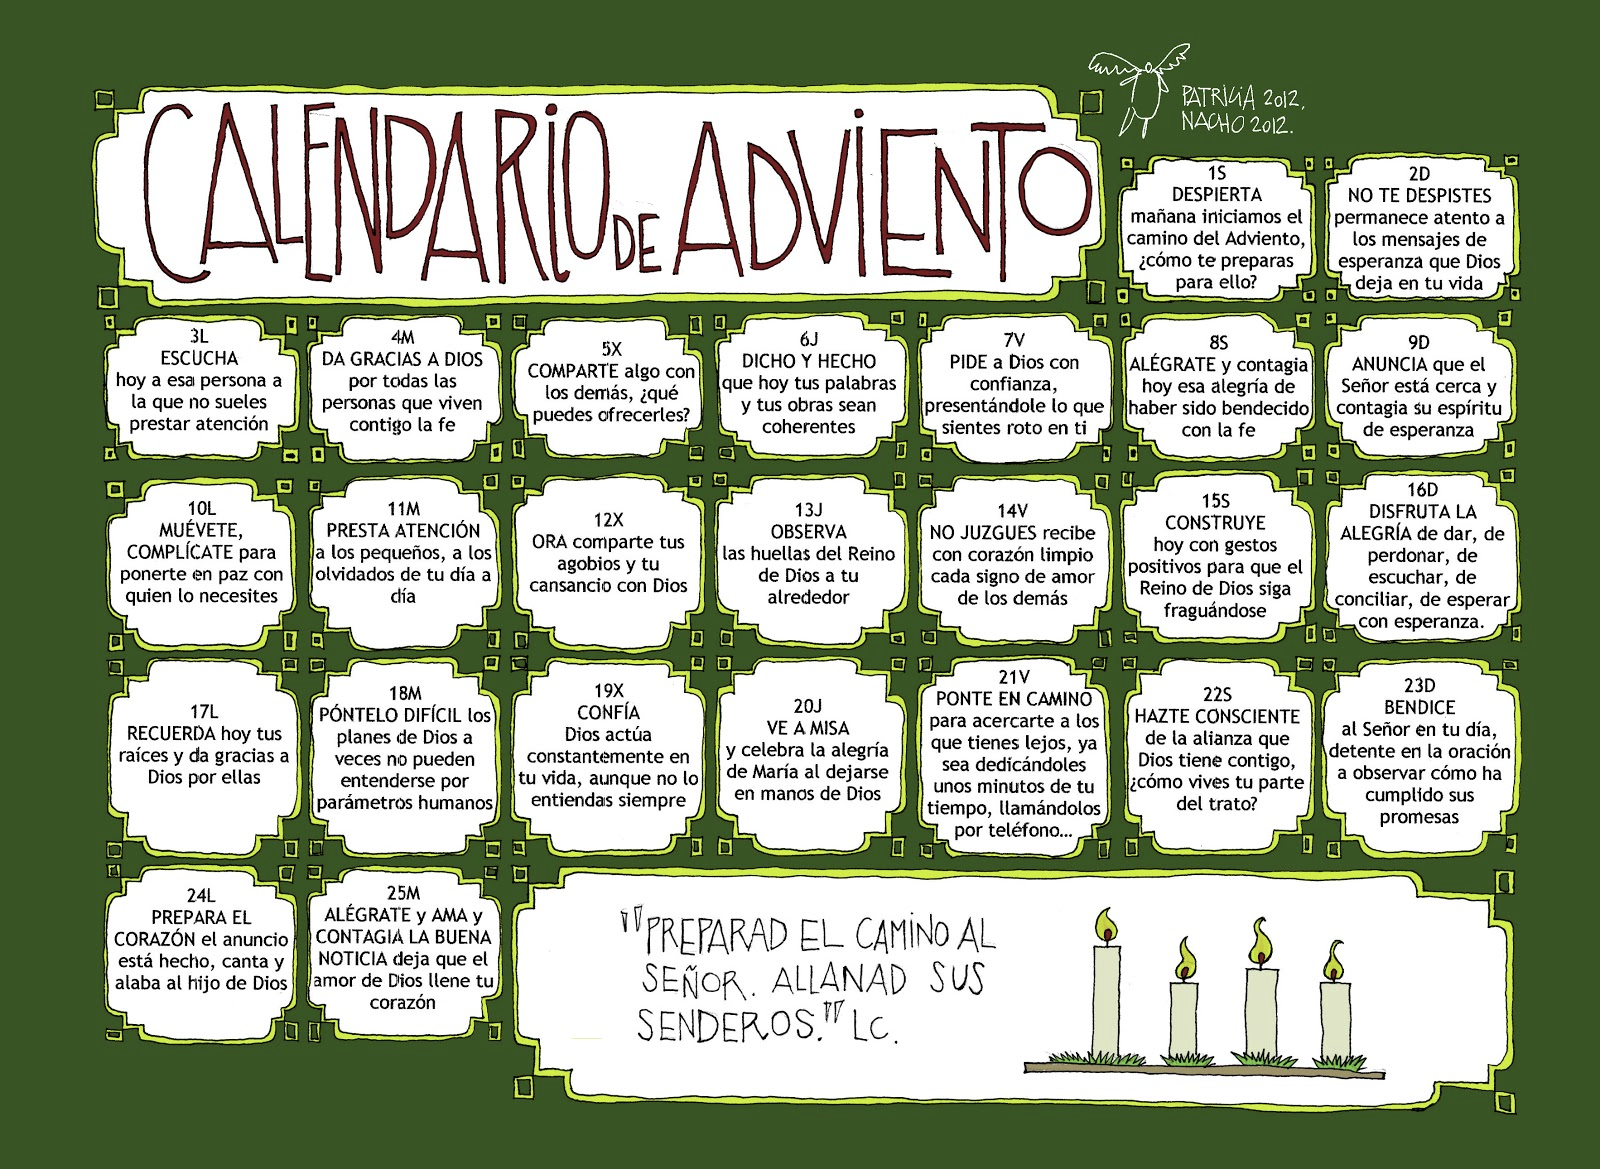 CALENDARIO DE ADVIENTO
PATRICIA 2012.
NACHO 2012.
1S
DESPIERTA
mañana iniciamos el
camino del Adviento,
¿cómo te preparas
para ello?
2D
NO TE DESPISTES
permanece atento a
los mensajes de
esperanza que Dios
deja en tu vida
3L
ESCUCHA
hoy a esa persona a
la que no sueles
prestar atención
4M
DA GRACIAS A DIOS
por todas las
personas que viven
contigo la fe
5X
COMPARTE algo con
los demás, ¿qué
puedes ofrecerles?
6J
DICHO Y HECHO
que hoy tus palabras
y tus obras sean
coherentes
7V
PIDE a Dios con
confianza,
presentándole lo que
sientes roto en ti
8S
ALÉGRATE y contagia
hoy esa alegría de
haber sido bendecido
con la fe
9D
ANUNCIA que el
Señor está cerca y
contagia su espíritu
de esperanza
10L
MUÉVETE,
COMPLÍCATE para
ponerte en paz con
quien lo necesites
11M
PRESTA ATENCIÓN
a los pequeños, a los
olvidados de tu día a
día
12X
ORA comparte tus
agobios y tu
cansancio con Dios
13J
OBSERVA
las huellas del Reino
de Dios a tu
alrededor
14V
NO JUZGUES recibe
con corazón limpio
cada signo de amor
de los demás
15S
CONSTRUYE
hoy con gestos
positivos para que el
Reino de Dios siga
fraguándose
16D
DISFRUTA LA
ALEGRÍA de dar, de
perdonar, de
escuchar, de
conciliar, de esperar
con esperanza.
17L
RECUERDA hoy tus
raíces y da gracias a
Dios por ellas
18M
PÓNTELO DIFÍCIL los
planes de Dios a
veces no pueden
entenderse por
parámetros humanos
19X
CONFÍA
Dios actúa
constantemente en
tu vida, aunque no lo
entiendas siempre
20J
VE A MISA
y celebra la alegría
de María al dejarse
en manos de Dios
21V
PONTE EN CAMINO
para acercarte a los
que tienes lejos, ya
sea dedicándoles
unos minutos de tu
tiempo, llamándolos
por teléfono...
22S
HAZTE CONSCIENTE
de la alianza que
Dios tiene contigo,
¿cómo vives tu parte
del trato?
23D
BENDICE
al Señor en tu día,
detente en la oración
a observar cómo ha
cumplido sus
promesas
24L
PREPARA EL
CORAZÓN el anuncio
está hecho, canta y
alaba al hijo de Dios
25M
ALÉGRATE y AMA y
CONTAGIA LA BUENA
NOTICIA deja que el
amor de Dios llene tu
corazón
"PREPARAD EL CAMINO AL
SEÑOR. ALLANAD SUS
SENDEROS." LC.